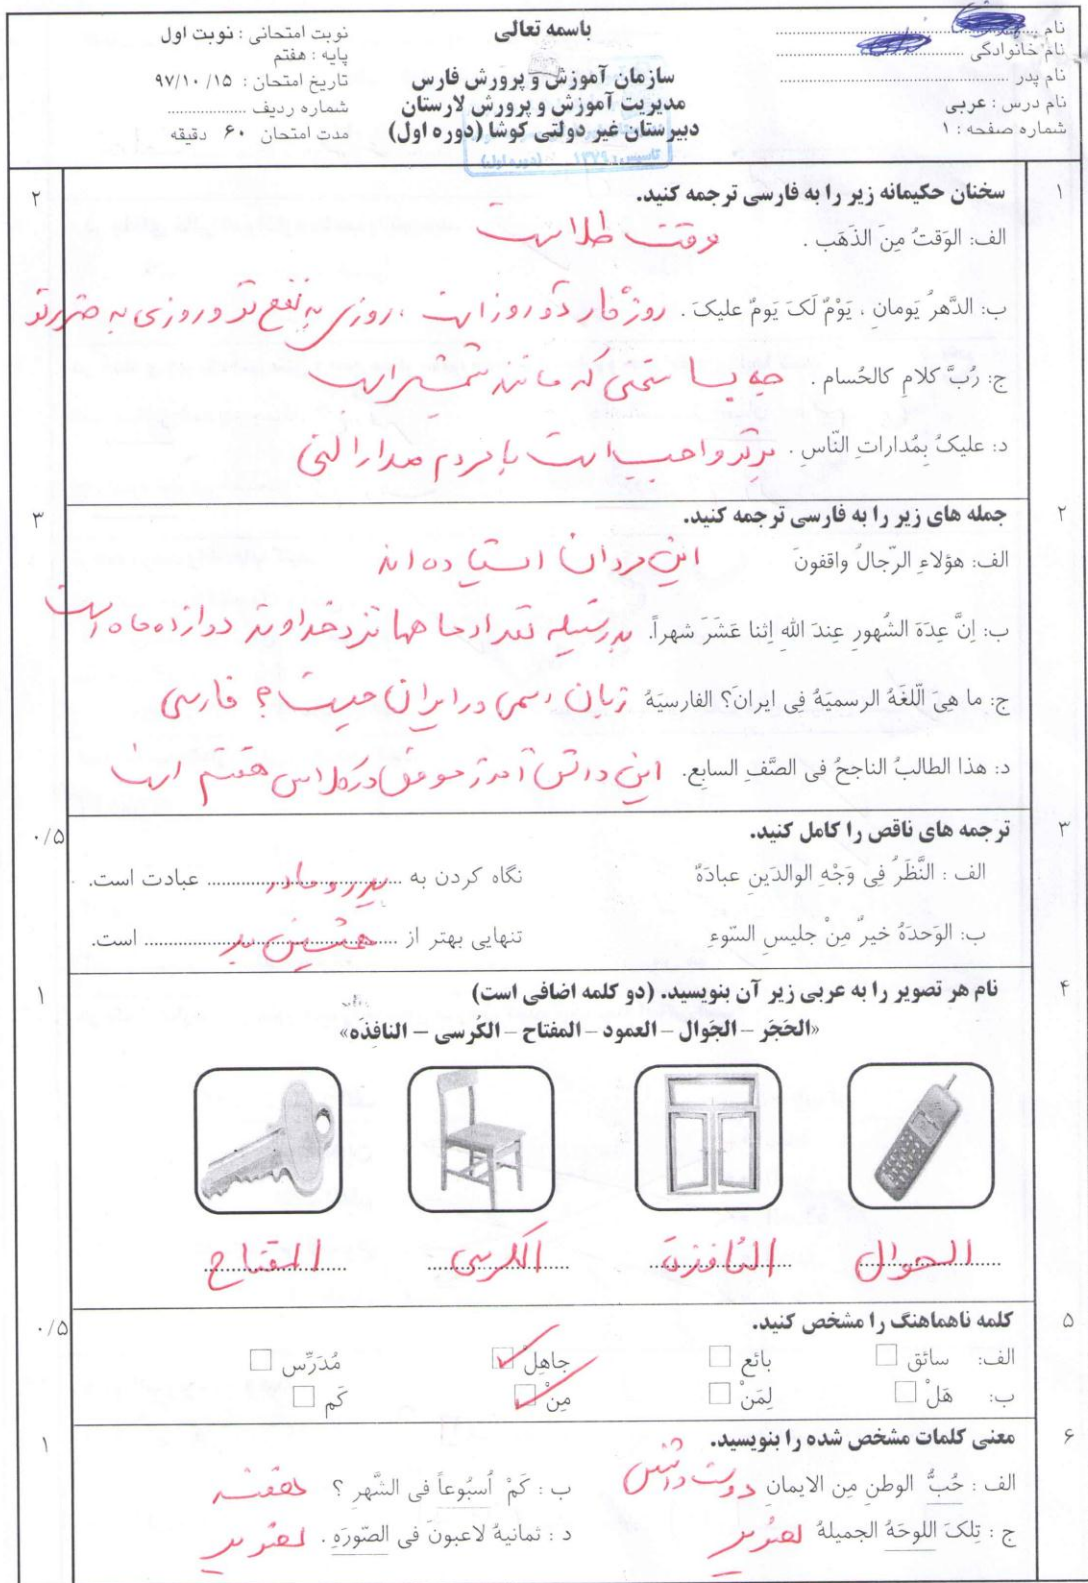 باسمه تعالی
نام
نام خانوادگی
نام پدر
نام درس : عربی
شماره صفحه : ۱
سازمان آموزش و پرورش فارس
مدیریت آموزش و پرورش لارستان
دبیرستان غیر دولتی کوشا (دوره اول)
تاسیس: ۱۳۷۹ (دوره اول)
نوبت امتحانی : نوبت اول
پایه : هفتم
تاریخ امتحان : ۹۷/۱۰/۱۵
شماره ردیف
مدت امتحان ۶۰ دقیقه
۱ سخنان حکیمانه زیر را به فارسی ترجمه کنید. ۲
الف: الوَقتُ مِنَ الذَهَب . وقت طلاست
ب: الدَّهرُ یَومانِ ، یَوْمٌ لَکَ یَومٌ علیکَ . روزگار دو روز است ، روزی به نفع تو و روزی به ضرر تو
ج: رُبَّ کلامِ کالحُسام . چه بسا سخنی که مانند شمشیر است
د: علیکُ بِمُداراتِ النّاسِ . بر تو واجب است با مردم مدارا کنی
۲ جمله های زیر را به فارسی ترجمه کنید. ۳
الف: هؤلاءِ الرّجالُ واقفونَ این مردان ایستاده اند
ب: اِنَّ عِدَةَ الشُهورِ عِندَ اللهِ اِثنا عَشَرَ شهراً. بدرستیکه تعداد ماه ها نزد خداوند دوازده ماه است
ج: ما هِیَ الّلغَهُ الرسمیَهُ فِی ایرانَ؟ الفارسیَهُ زبان رسمی در ایران چیست ؟ فارسی
د: هذا الطالبُ الناجحُ فی الصَّفِ السابِع. این دانش آموز موفق در کلاس هفتم است
۳ ترجمه های ناقص را کامل کنید. ۰/۵
الف : النَّظَرُ فِی وَجْهِ الوالدَینِ عبادَهٌ نگاه کردن به پدر و مادر عبادت است.
ب: الوَحدَهُ خیرٌ مِنْ جلیسِ السّوءِ تنهایی بهتر از همنشین بد است.
۴ نام هر تصویر را به عربی زیر آن بنویسید. (دو کلمه اضافی است) ۱
«الحَجَر – الجَوال – العمود – المفتاح – الکُرسی – النافذَه»
الجوال النافذة الکرسی المفتاح
۵ کلمه ناهماهنگ را مشخص کنید. ۰/۵
الف: سائق □ بائع □ جاهِلْ ☑ مُدَرِّس □
ب: هَلْ □ لِمَنْ □ مِنْ ☑ کَم □
۶ معنی کلمات مشخص شده را بنویسید. ۱
الف : حُبُّ الوطنِ مِن الایمانِ دوست داشتن ب : کَمْ اُسبُوعاً فی الشَّهرِ ؟ هفته
ج : تِلکَ اللوحَهُ الجمیلهُ د : ثمانیهُ لاعبونَ فی الصّورَهِ .